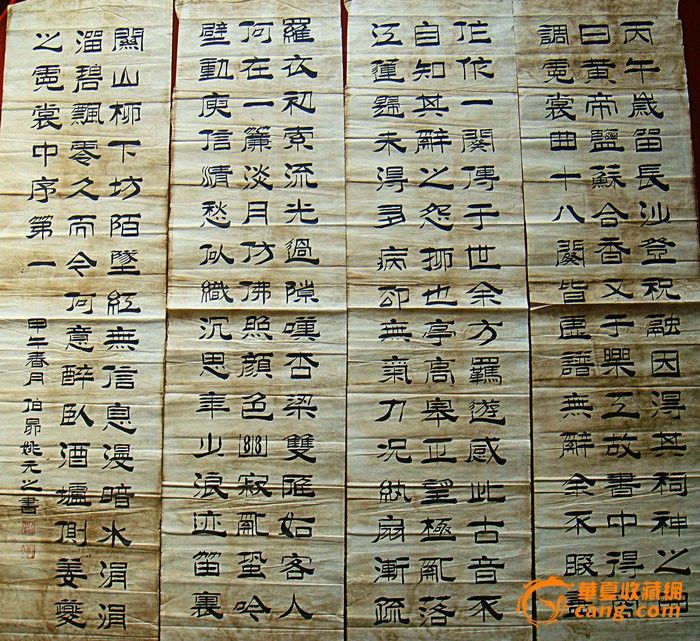 丙午歲留長沙登祝融因得其祠神之
曰黃帝鹽蘇合香又于樂工故書中得
調霓裳曲十八闋皆虛譜無辭余不暇盡
作作一闋傳于世余方羈遊感此古音不
自知其辭之怨抑也亭高皋正望極亂落
江蓮歸未得多病卻無氣力況紈扇漸疏
羅衣初索流光過隙嘆杏梁雙雁如客人
何在一簾淡月仿佛照顏色幽寂亂蛩吟
壁動庾信清愁似織沉思年少浪迹笛裏
關山柳下坊陌墜紅無信息漫暗水涓涓
溜碧飄零久而今何意醉臥酒壚側姜夔
之霓裳中序第一
甲午春月 伯昂姚元之書
華夏收藏網
cang.com